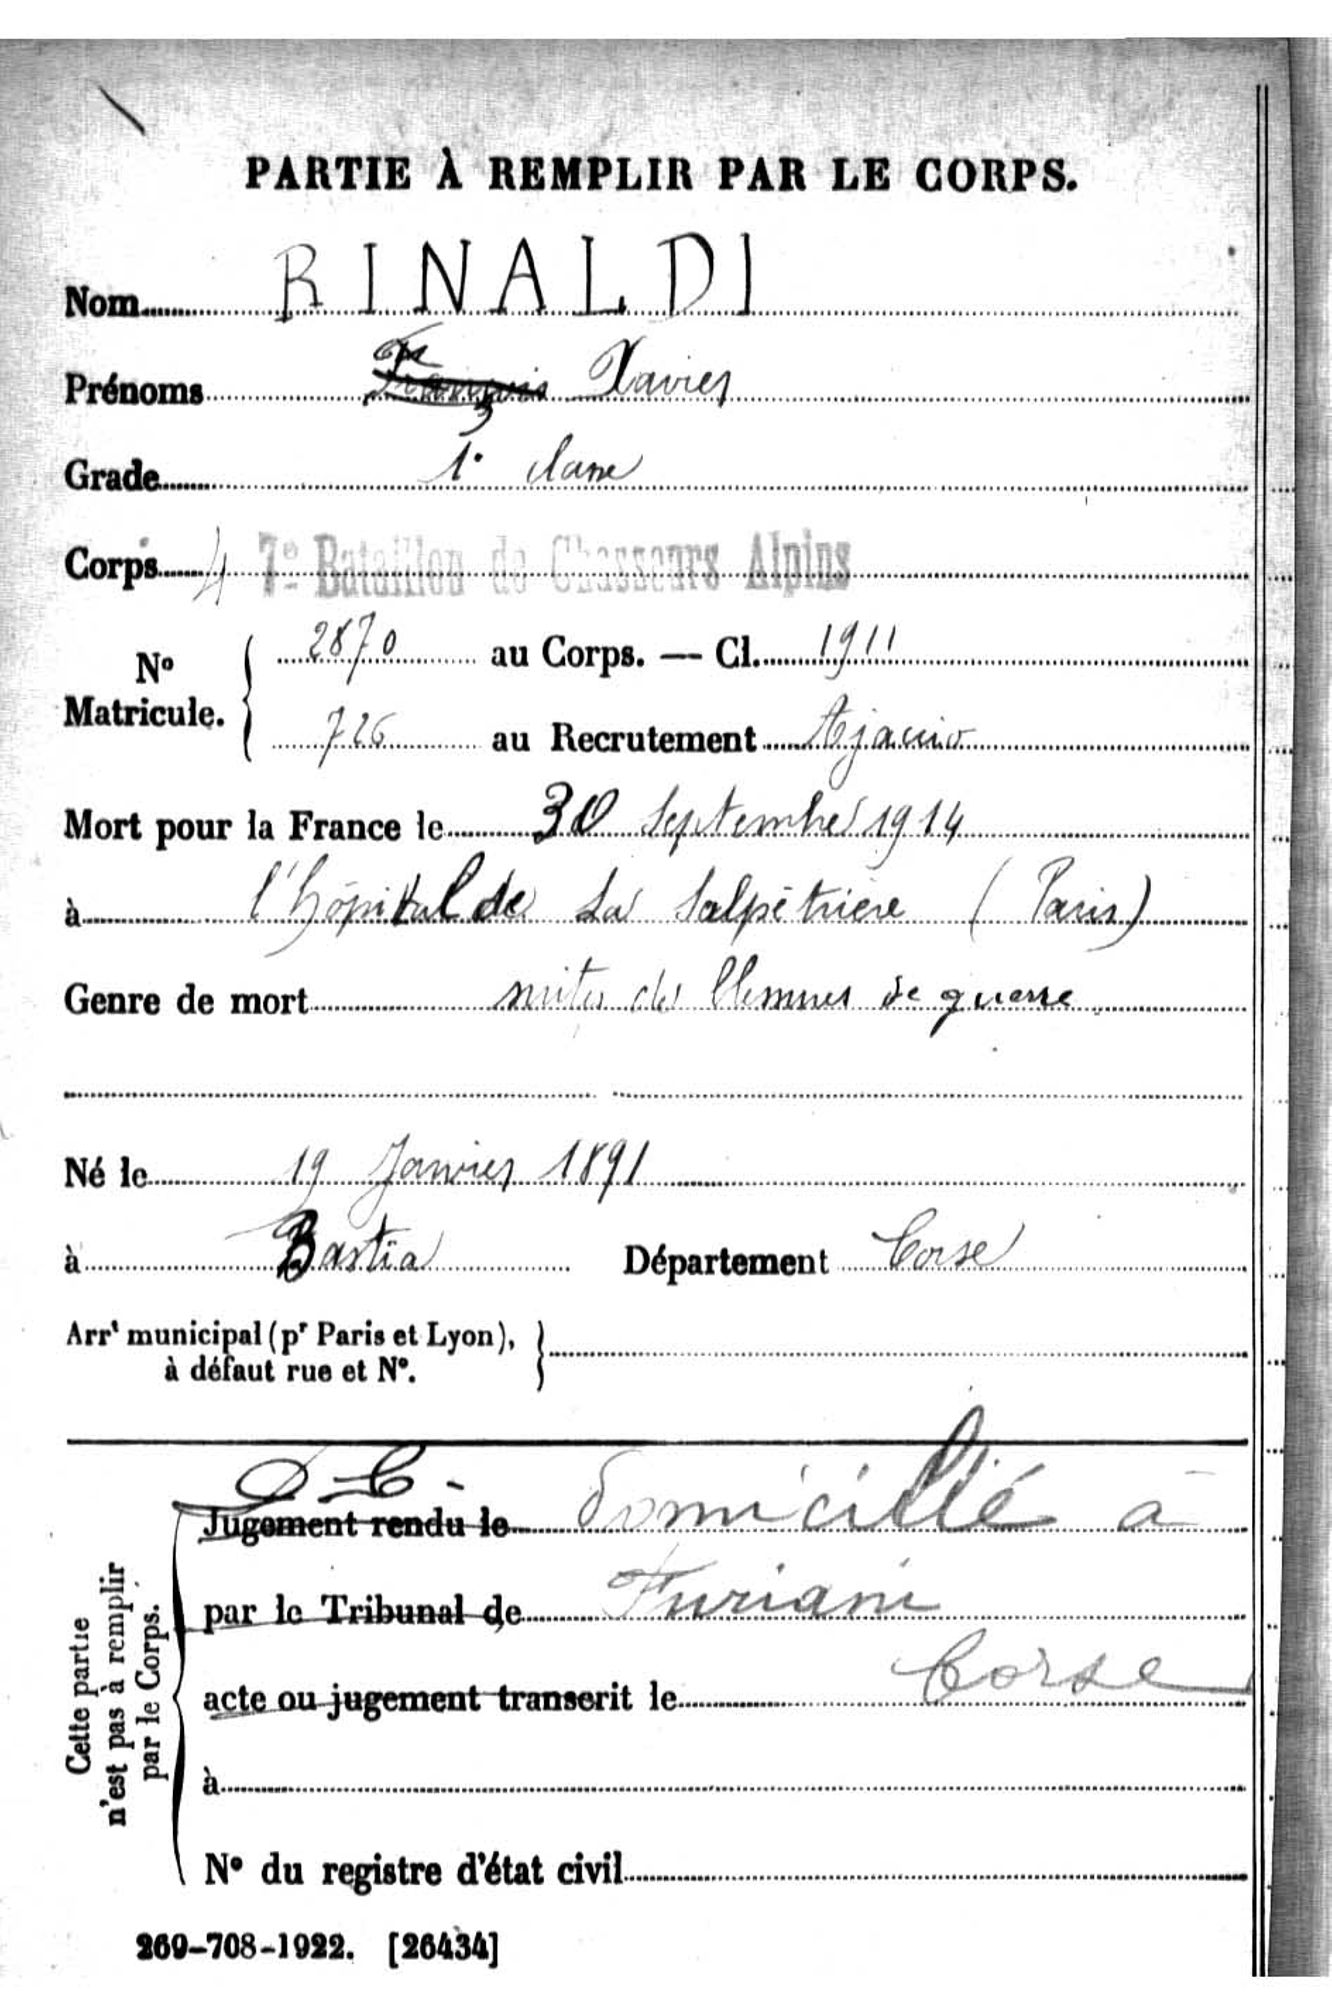 PARTIE À REMPLIR PAR LE CORPS.
Nom RINALDI
Prénoms François Xavier
Grade 1e classe
Corps 4 7e Bataillon de Chasseurs Alpins
No Matricule. 2870 au Corps. — Cl. 1911
726 au Recrutement Ajaccio
Mort pour la France le 30 Septembre 1914
à l'hôpital de La Salpêtrière (Paris)
Genre de mort suites de blessures de guerre
Né le 19 Janvier 1891
à Bastia Département Corse
Arrt municipal (pr Paris et Lyon),
à défaut rue et No.
Jugement rendu le domicilié à
par le Tribunal de Furiani
acte ou jugement transcrit le Corse
à
No du registre d'état civil
Cette partie
n'est pas à remplir
par le Corps.
269-708-1922. [26434]